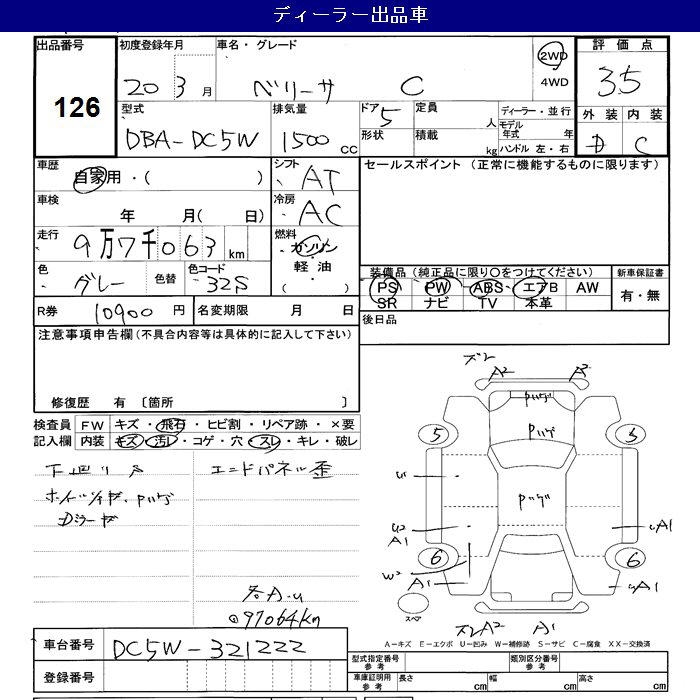 ディーラー出品車
出品番号 初度登録年月 車名・グレード 2WD 評価点
126 20 3 月 ベリーサ C 4WD 3.5
型式 排気量 ドア 5 定員 人 ディーラー・並行 外装 内装
DBA-DC5W 1500 CC 形状 積載 kg モデル年式 年 D C
ハンドル 左・右
車歴 自家用・( ) シフト AT セールスポイント (正常に機能するものに限ります)
車検 年 月( 日) 冷房 AC
走行 9万7千063 km 燃料 ガソリン
軽油
( )
色 グレー 色替 色コード 32S 装備品 (純正品に限り〇をつけてください) 新車保証書
PS PW ABS エアB AW 有・無
SR ナビ TV 本革
R券 10900 円 名変期限 月 日 後日品
注意事項申告欄 (不具合内容等は具体的に記入して下さい)
修復歴 有 〔箇所 〕
検査員 FW キズ・飛石・ヒビ割・リペア跡・×要
記入欄 内装 キズ・汚レ・コゲ・穴・スレ・キレ・破レ
下廻りサ エンドパネル歪
@97064km
ズレ A2 A2
Pハゲ
Pハゲ
5 5
Pハゲ
U
U2 A1 UA1
6 6
W2 A1 UA1
スペア
ズレA2 A1
A-キズ E-エクボ U-凹み W-補修跡 S-サビ C-腐食 XX-交換済
車台番号 DC5W-321222
登録番号
型式指定番号 参考 類別区分番号 参考
車庫証明用 参考 長さ cm 幅 cm 高さ cm